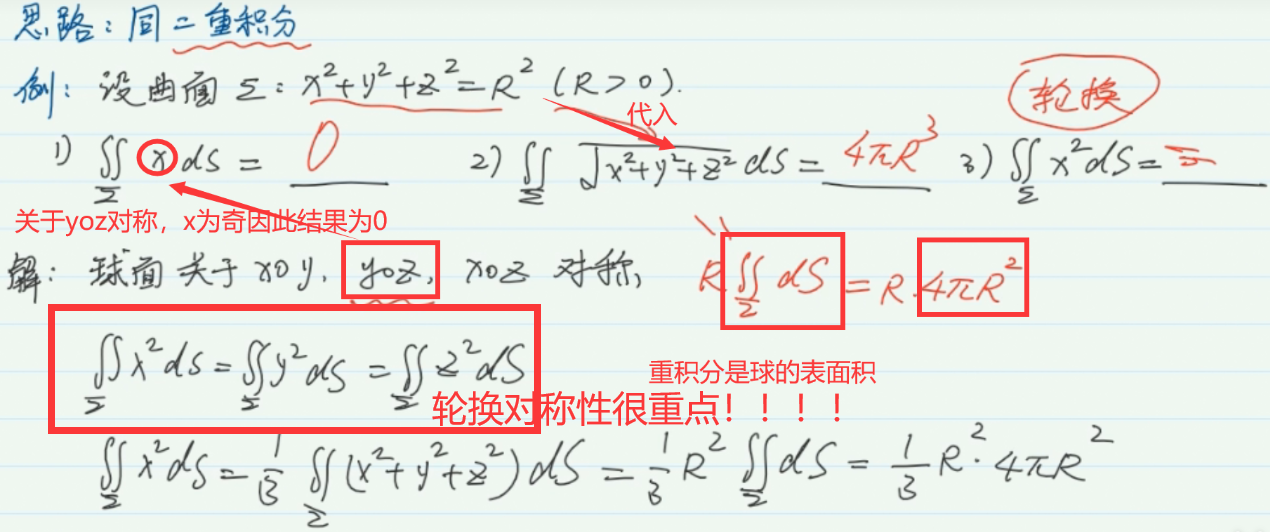 思路：同二重积分
例：设曲面 Σ：x²+y²+z²=R² (R>0).
轮换
代入
1) ∬_Σ x dS = 0  2) ∬_Σ √(x²+y²+z²) dS = 4πR³  3) ∬_Σ x² dS =
关于yoz对称，x为奇因此结果为0
解：球面关于 xoy, yoz, xoz 对称,
R ∬_Σ dS = R·4πR²
∬_Σ x² dS = ∬_Σ y² dS = ∬_Σ z² dS
重积分是球的表面积
轮换对称性很重点！！！！
∬_Σ x² dS = 1/3 ∬_Σ (x²+y²+z²) dS = 1/3 R² ∬_Σ dS = 1/3 R²·4πR²